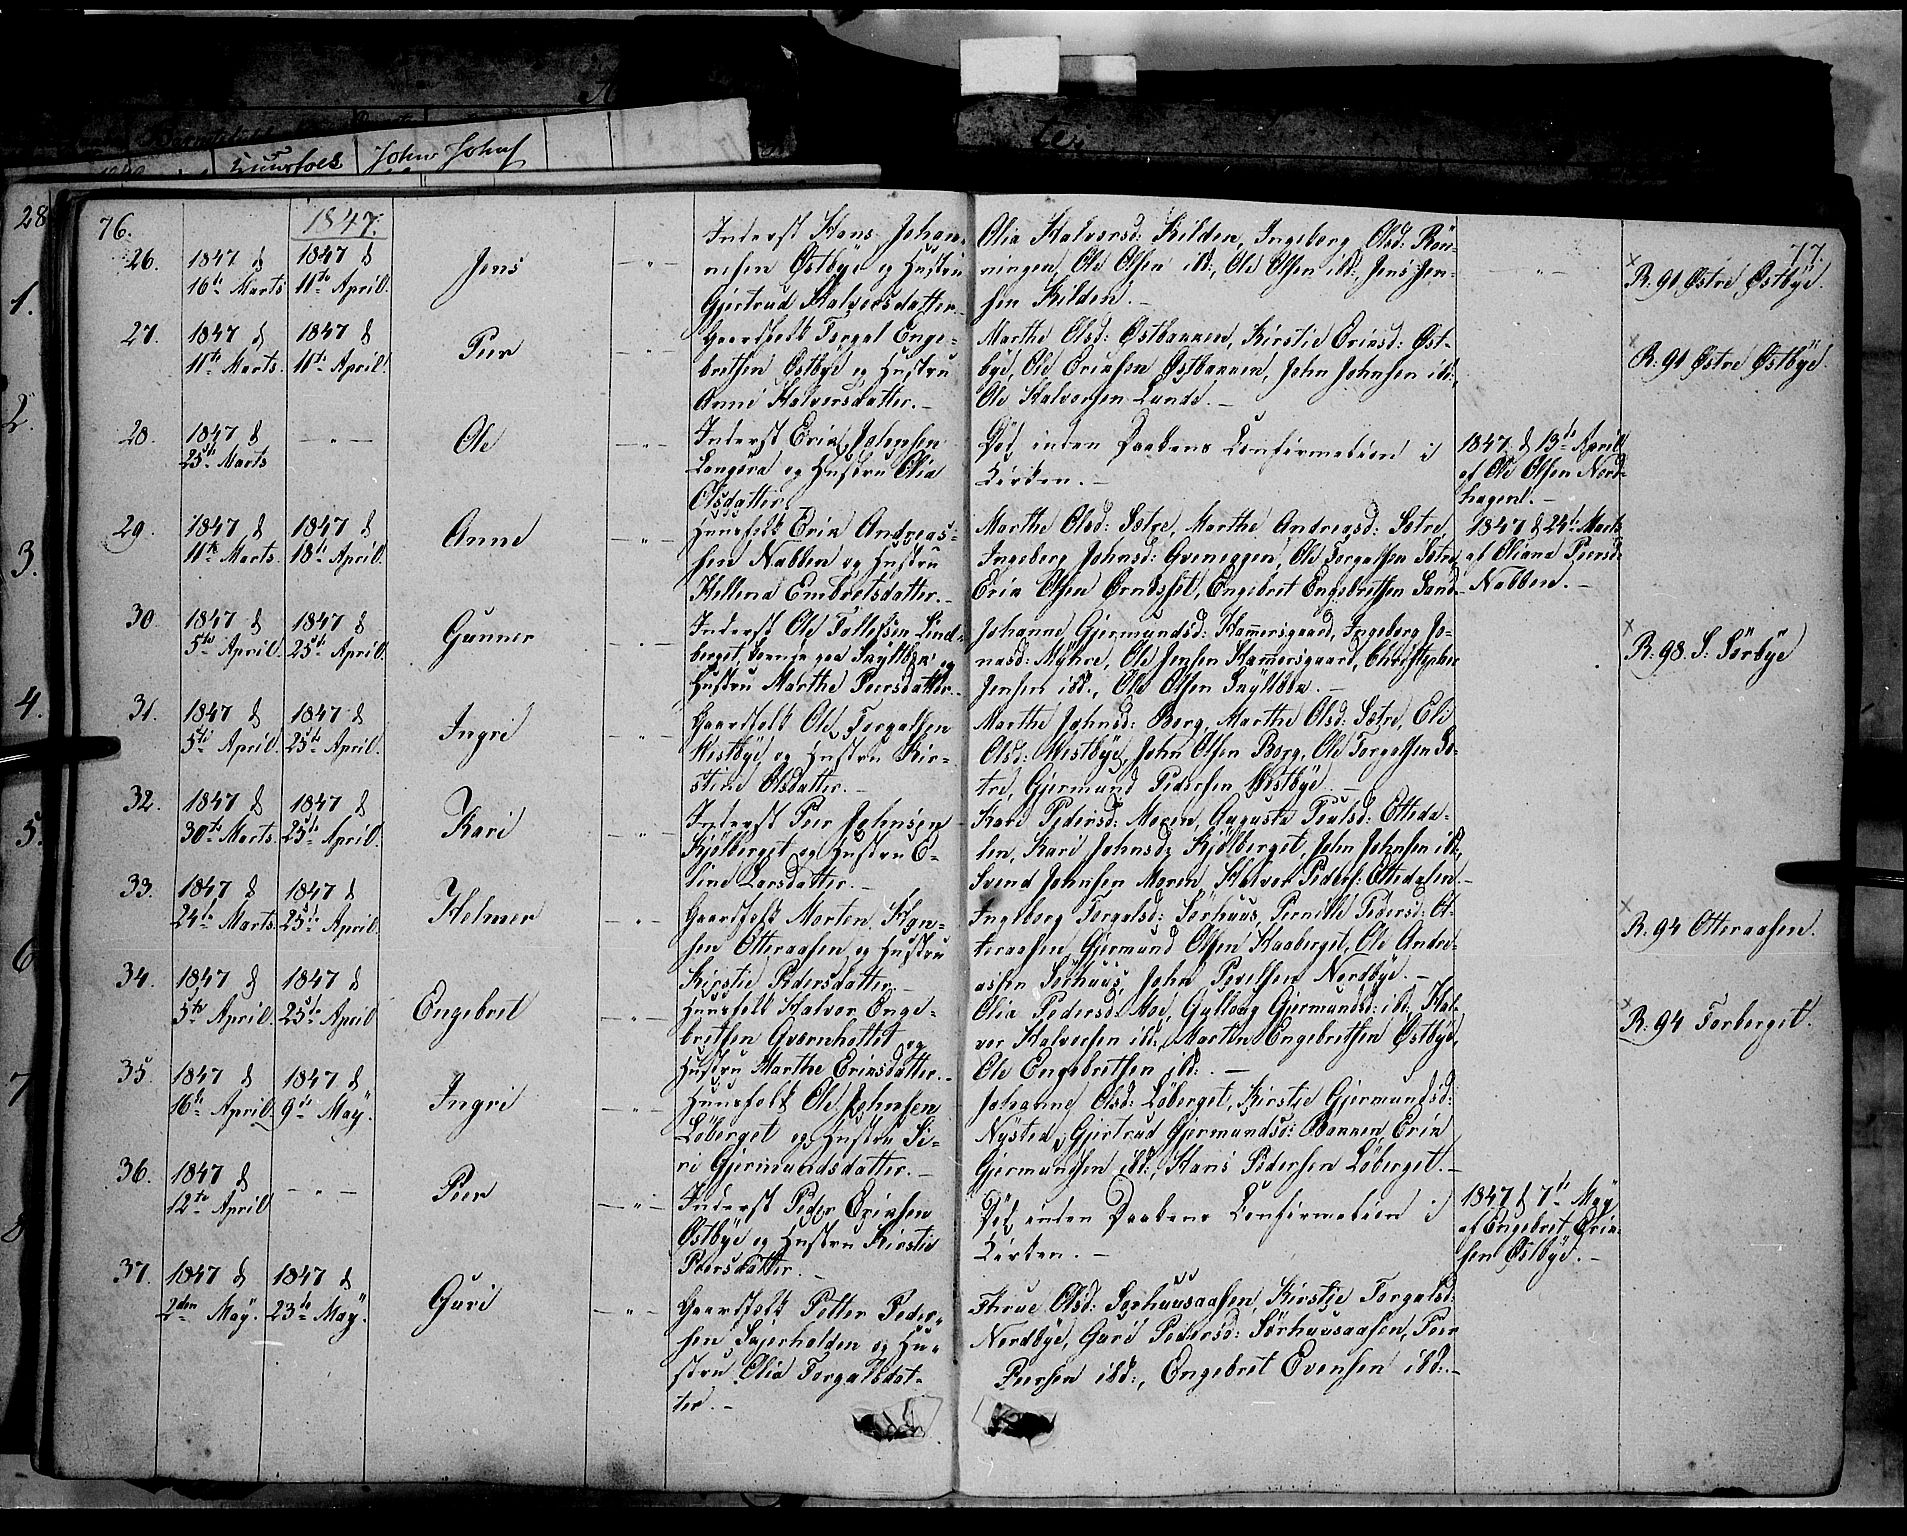 John Johns
28
76.
1847.
77.
26.
1847 d
16te Marts
1847 d
11te April.
Jens
— " —
Inderst Hans Johan-
nesen Østbye og Hustru
Gjertrud Halvorsdatter.
Olia Halvorsd: Kilden, Ingeborg Olsd: Rön-
ningen, Ole Olsen ibd:, Ole Olsen ibd:, Jens Jen-
sen Kilden. —
— " —
R. 91 Østre Østbye.
27.
1847 d
11te Marts.
1847 d
11te April.
Peer
— " —
Gaardfolk Torgal Enge-
bretsen Østbye og Hustru
Anne Halvorsdatter. —
Marthe Olsd: Østbannen, Kirstie Eriksd: Øst-
bye, Ole Eriksen Østbannen, John Johnsen ibd:
Ole Halvorsen Lunde. —
R: 91 Østre Østbye.
28.
1847 d
25te Marts
— " —
Ole
— " —
Inderst Erik Johnsen
Langöra og Hustru Olia
Olsdatter.
Död inden Daabens Confirmation i
Kirken. —
1847 d 13te April
af Ole Olsen Nord-
hagen. —
29.
1847 d
11te Marts.
1847 d
18te April.
Anne
— " —
Huusfolk Erik Andreas-
sen Nabben og Hustru
Hellena Embretsdatter. —
Marthe Olsd: Sætre, Marthe Andreasd: Sætre
Ingeborg Johnsd: Qveneggen, Ole Torgalsen Sætre
Erik Olsen Örndsset, Engebret Engebretsen Sand-
1847 d 24te Marts
af Oliana Peersd:
Nabben. —
30.
1847 d
5te April.
1847 d
25te April.
Gunner
— " —
Inderst Ole Tollefsen Lind-
berget, boende paa Skyltbæk og
Hustru Marthe Peersdatter. —
Johanne Gjermundsd: Hammersgaard, Ingeborg Jo-
nasd: Myhre, Ole Jensen Hammersgaard, Christopher
Jensen ibd:, Ole Olsen Skyltbæk. —
R: 98. S: Sörbye
31.
1847 d
5te April.
1847 d
25te April.
Ingri
— " —
Gaardfolk Ole Torgalsen
Westbye og Hustru Kir-
stine Olsdatter. —
Marthe Johnsd: Berg, Marthe Olsd: Sætre, Eli
Olsd: Westbye, John Olsen Berg, Ole Torgalsen Sæ-
tre, Gjermund Pedersen Westbye. —
32.
1847 d
30te Marts.
1847 d
25te April.
Kari
— " —
Inderst Peer Johnsen
Kjölberget og Hustru O-
line Larsdatter. —
Kari Pedersd: Moren, Augusta Paulsd: Otteda-
len, Kari Johnsd: Kjölberget, John Johnsen ibd:,
Svend Johnsen Moren, Halvor Peders: Ottedalen. —
33.
1847 d
24te Marts.
1847 d
25te April.
Helmer
— " —
Gaardfolk Morten Han-
sen Otteraasen og Hustru
Kirstie Pedersdatter. —
Ingeborg Torgalsd: Sörhuus, Pernille Pedersd: Ot-
teraasen, Gjermund Olsen Haaberget, Ole Andre-
assen Sörhuus, John Povelsen Nordbye. —
R. 94 Otteraasen.
34.
1847 d
5te April.
1847 d
25te April
Engebret
— " —
Huusfolk Halvor Enge-
bretsen Qvernhottet og
Hustru Marthe Eriksdatter. —
Olia Pedersd: Moe, Gulloug Gjermundsd: ibd:, Hal-
vor Halvorsen ibd:, Martin Engebretsen Østbye,
Ole Engebretsen ibd:. —
R. 94 Torberget.
35.
1847 d
16te April.
1847 d
9de May.
Ingri
— " —
Huusfolk Ole Johnsen
Löberget og Hustru Si-
ri Gjermundsdatter. —
Johanne Olsd: Löberget, Kirstie Gjermundsd:
Nysted, Gjertrud Gjermundsd: Bannen, Erik
Gjermundsen ibd:, Hans Pedersen Löberget. —
36.
1847 d
12te April
— " —
Peer
— " —
Inderst Peder Eriksen
Østbye og Hustru Kirstie
Peersdatter. —
Död inden Daabens Confirmation i
Kirken. —
1847 d 7de May
af Engebret Erik-
sen Østbye. —
37.
1847 d
2den May.
1847 d
23de May.
Guri
— " —
Gaardfolk Petter Peder-
sen Skjerholden og Hu-
stru Olia Torgalsdat-
ter. —
Thrue Olsd: Sörhuusaasen, Kirstie Torgalsd:
Nordbye, Guri Pedersd: Sörhuusaasen, Peer
Peersen ibd:, Engebret Evensen ibd: —
1.
2.
3.
4.
5.
6
7
8